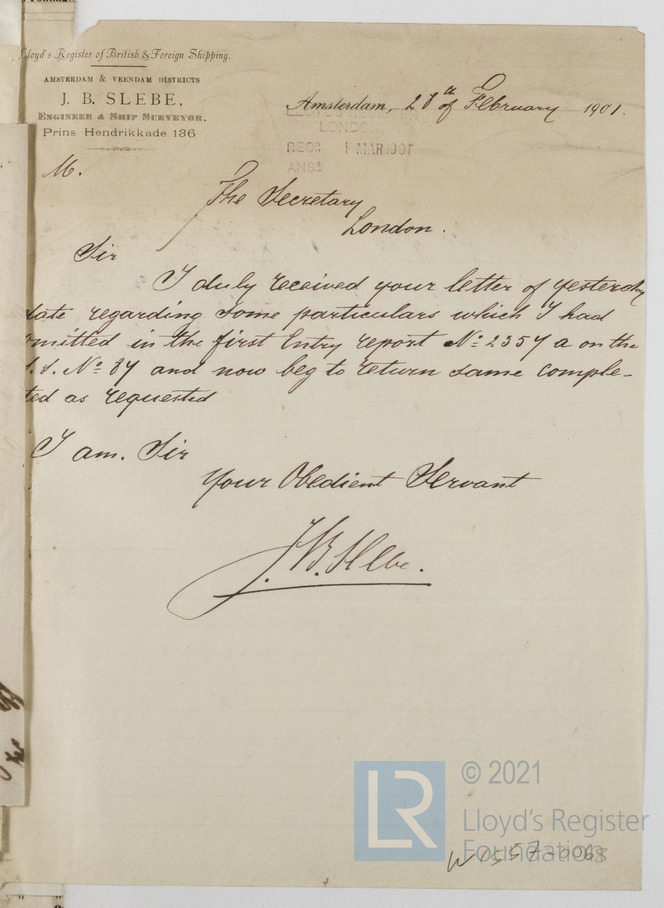 Lloyd's Register of British & Foreign Shipping.
AMSTERDAM & VEENDAM DISTRICTS
J. B. SLEBE,
ENGINEER & SHIP SURVEYOR.
Prins Hendrikkade 136
Amsterdam, 28th of February 1901.
LLOYD'S
LONDON
RECD 1 MAR 1901
ANSD
M.
The Secretary
London.
Sir
I duly received your letter of yesterday
date regarding some particulars which I had
omitted in the first Entry report No: 2357 a on the
S.S. No: 87 and now beg to return same comple-
ted as requested
I am. Sir
Your Obedient Servant
J.B. Slebe.
LR
© 2021
Lloyd's Register
Foundation
W1557-0068